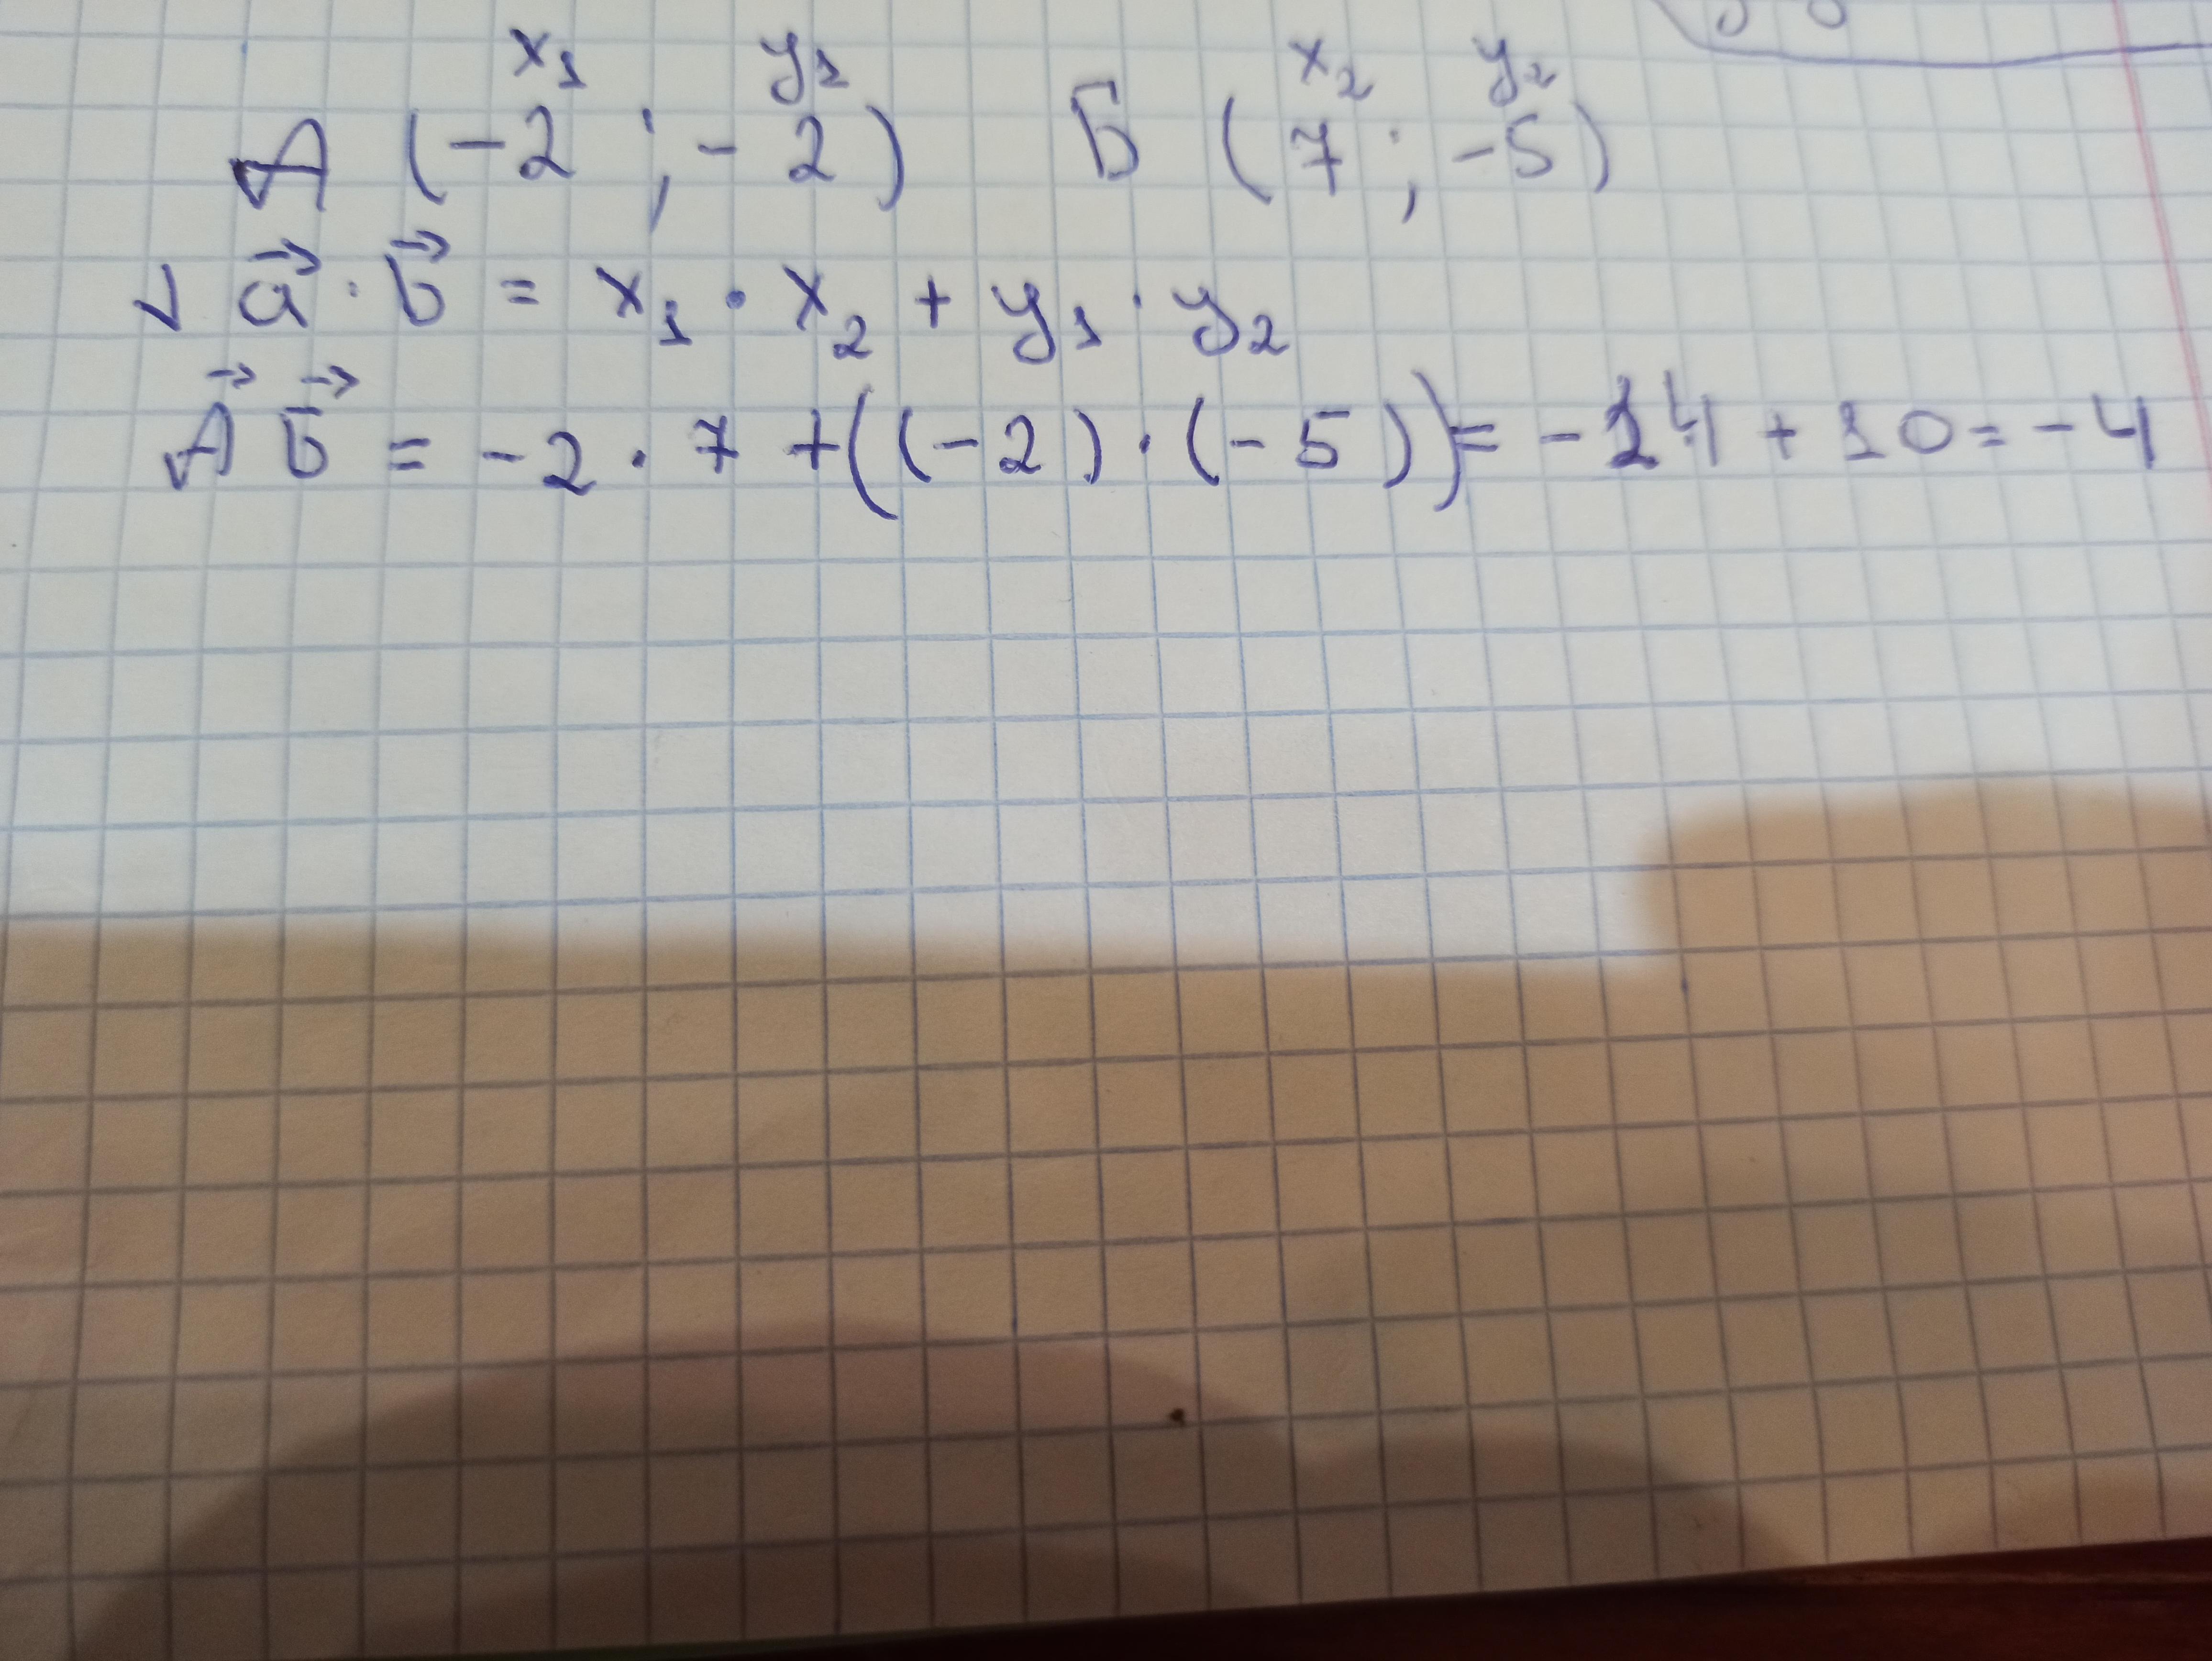 x₁ y₁ x₂ y₂
А (-2 ; -2) Б (7 ; -5)
√ a⃗ · b⃗ = x₁ · x₂ + y₁ · y₂
А⃗ Б⃗ = -2 · 7 + ((-2) · (-5)) = -14 + 10 = -4